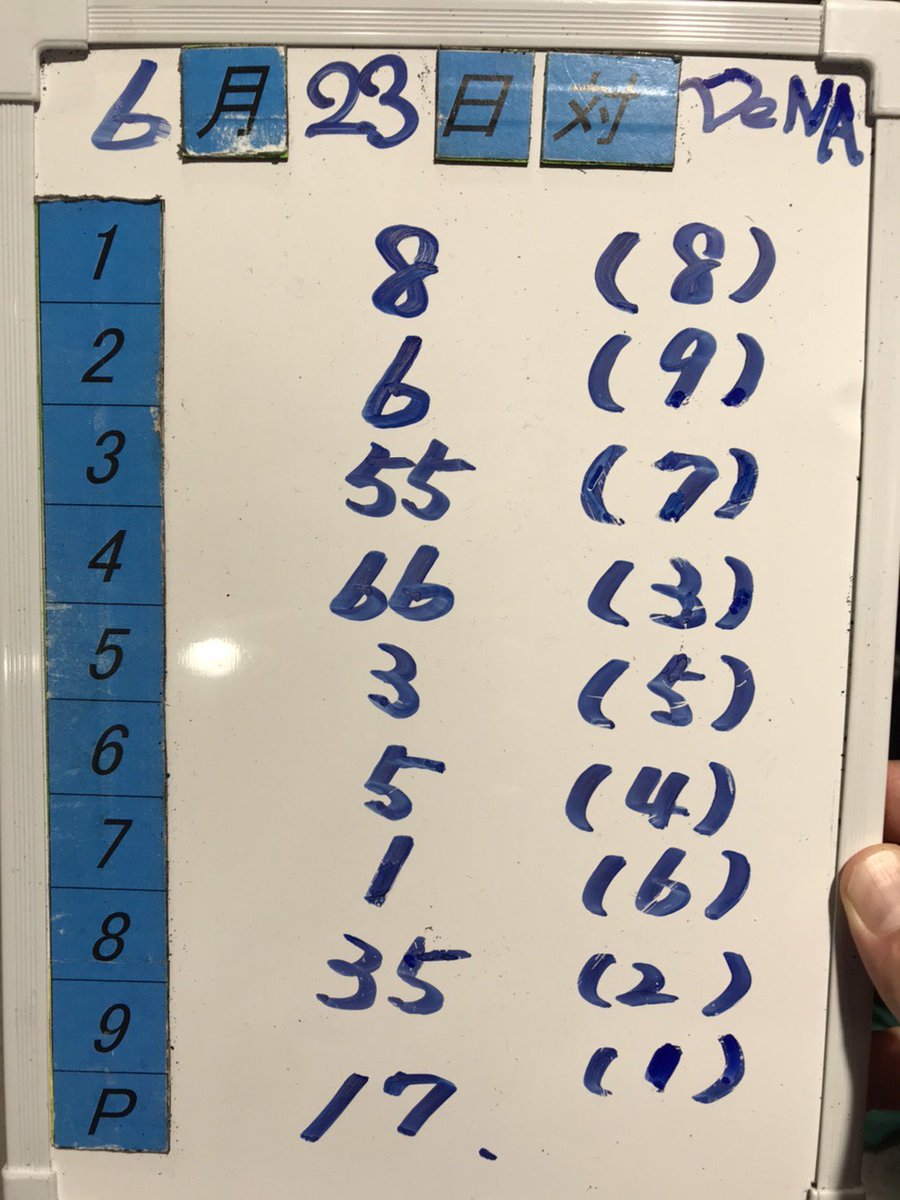 6月23日対DeNA
1 8 (8)
2 6 (9)
3 55 (7)
4 66 (3)
5 3 (5)
6 5 (4)
7 1 (6)
8 35 (2)
9 (1)
P 17.